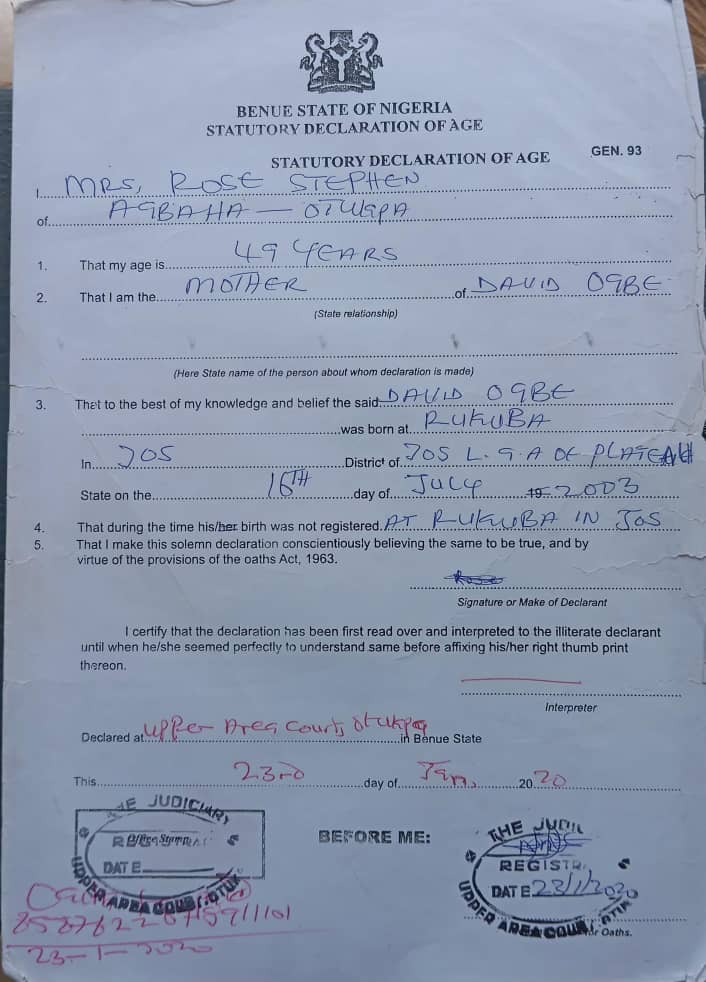 BENUE STATE OF NIGERIA
STATUTORY DECLARATION OF AGE
STATUTORY DECLARATION OF AGE GEN. 93
I, MRS, ROSE STEPHEN
of AGBAHA - OTUKPA
1. That my age is 49 YEARS
2. That I am the MOTHER of DAVID OGBE
(State relationship)
(Here State name of the person about whom declaration is made)
3. That to the best of my knowledge and belief the said DAVID OGBE
was born at RUKUBA
In JOS District of JOS L.G.A OF PLATEAU
State on the 16TH day of July 19 2003
4. That during the time his/her birth was not registered. AT RUKUBA IN JOS
5. That I make this solemn declaration conscientiously believing the same to be true, and by
virtue of the provisions of the oaths Act, 1963.
Signature or Make of Declarant
I certify that the declaration has been first read over and interpreted to the illiterate declarant
until when he/she seemed perfectly to understand same before affixing his/her right thumb print
thereon.
Interpreter
Declared at Upper Area Court, Otukpa in Benue State
This 23rd day of Jan, 2020
THE JUDICIARY
Office Stamp
DATE
UPPER AREA COURT OTUK
BEFORE ME:
THE JUDI
REGISTRA
DATE 23/1/2020
UPPER AREA COURT OTUK
for Oaths.
23-1-2020